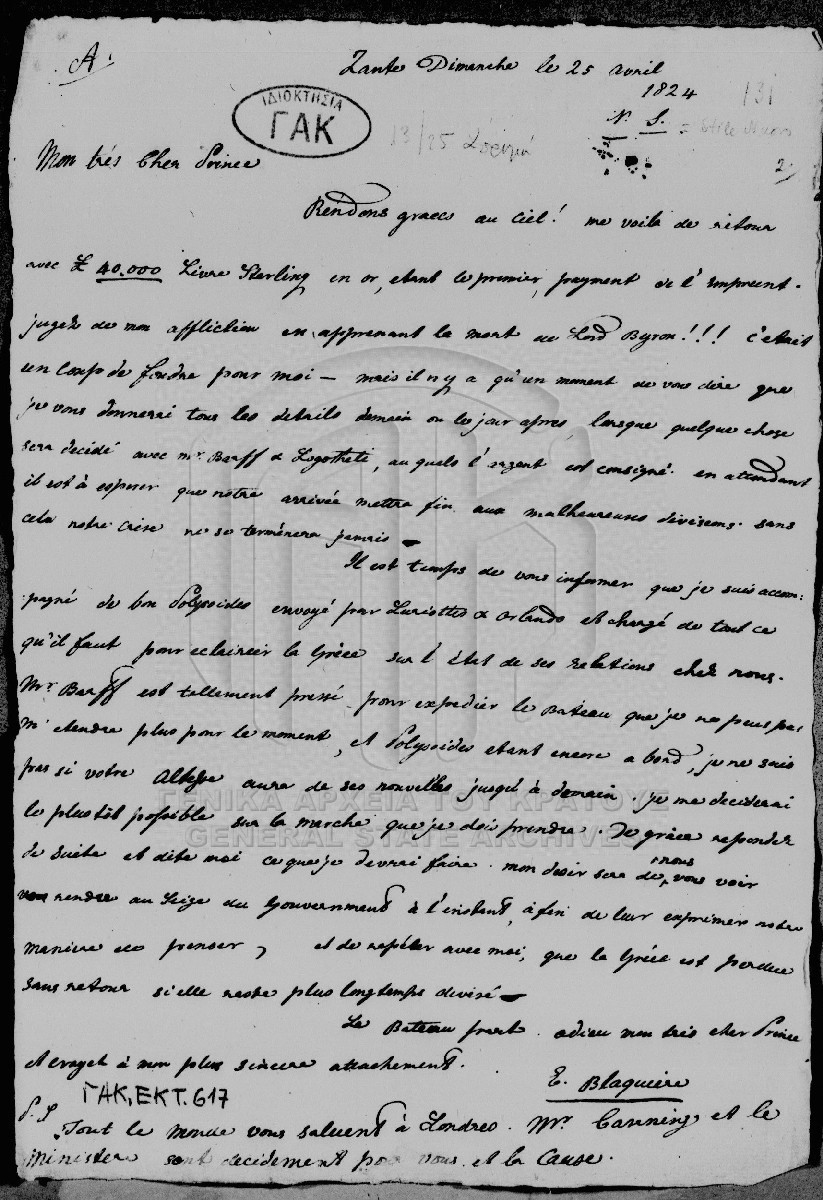 A.
Zante Dimanche le 25 Avril
1824
131
N. S. = Stile Nuovo
ΙΔΙΟΚΤΗΣΙΑ
ΓΑΚ
13/25
2
Mon trés Cher Prince
Rendons grace au Ciel! me voilà de retour
avec £ 40.000 Livre Sterling en or, etant le premier payment de l'Emprunt.
jugez de mon affliction en apprenant la mort de Lord Byron!!! C'etait
un Coup de foudre pour moi — mais il n'y a qu'un moment de vous dire que
je vous donnerai tous les details demain ou le jour apres, lorsque quelque chose
sera decidé avec Mr. Barff & Logotheti, au quels l'argent est consigné. en attendant
il est à esperer que notre arrivée mettra fin aux malheureuses divisions. sans
cela notre Crise ne se terminera jamais —
Il est temps de vous informer que je suis accom:
pagné de bon Polyzoides envoyé par Luriottis & Orlando et chargé de tout ce
qu'il faut pour eclaircir la Grèce sur l'État de ses relations chez nous.
Mr. Barff est tellement pressé pour expedier le Bateau que je ne peus pas
m'etendre plus pour le moment, et Polyzoides etant encore a bord, je ne sais
pas si votre Altesse aura de ses nouvelles jusqu'à demain. je me deciderai
le plustôt possible sur la marche que je dois prendre. De grâce reponder
de suite et dite moi ce que je devrai faire. mon desir sera de, vous voir
nous
rendre au Seige du Gouvernment à l'instant, à fin de leur exprimer notre
maniere de penser, et de repéter avec moi, que la Grèce est perdue
sans retour si elle reste plus longtemps divisé —
Le Bateau part. adieu mon tres cher Prince
et croyez à mon plus sincere attachement.
E. Blaquiere
ΓΑΚ, ΕΚΤ. 617
P.S
Tout le monde vous saluent à Londres. Mr. Canning et le
Ministere sont decidement pour vous et la Cause.
ΓΕΝΙΚΑ ΑΡΧΕΙΑ ΤΟΥ ΚΡΑΤΟΥΣ
GENERAL STATE ARCHIVES